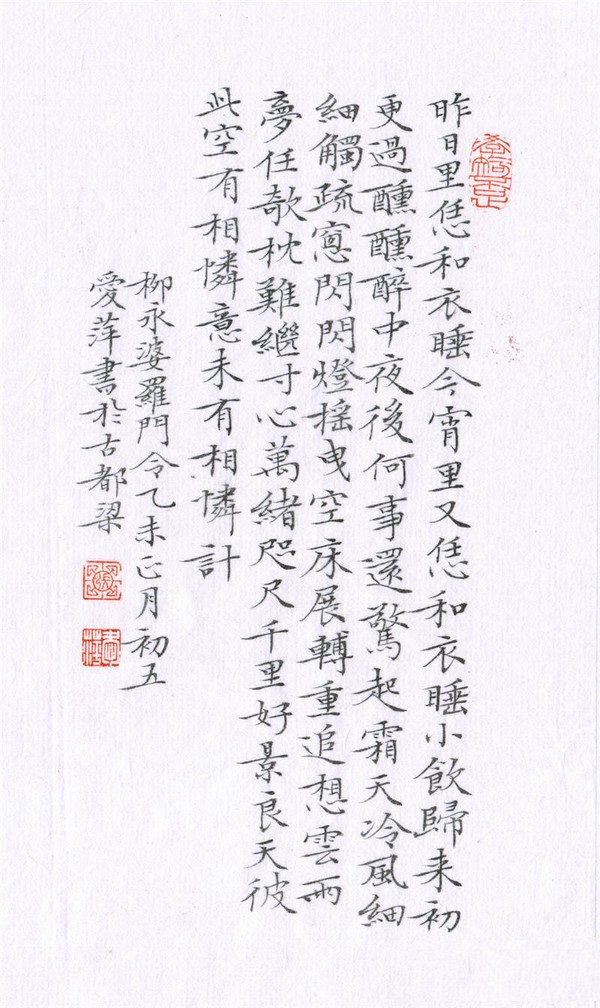 昨日里恁和衣睡今宵里又恁和衣睡小飲歸来初
更過醺醺醉中夜後何事還驚起霜天冷風細
細觸疏窓閃閃燈摇曳空床展轉重追想雲雨
夢任欹枕難繼寸心萬緒咫尺千里好景良天彼
此空有相憐意未有相憐計
柳永婆羅門令乙未正月初五
愛萍書於古都梁